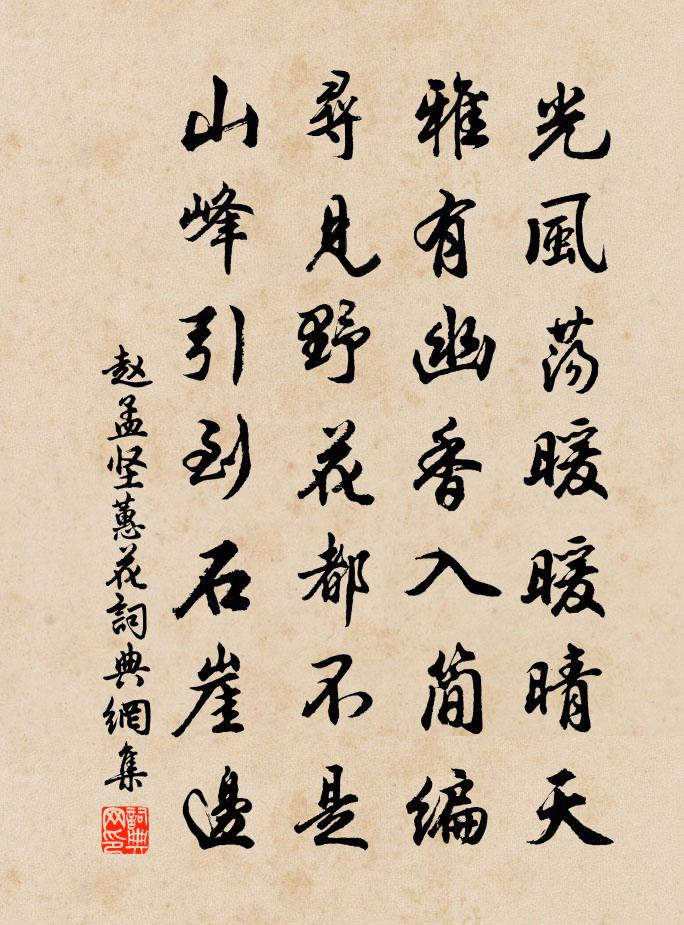 光風荡暖暖晴天
雅有幽香入简编
尋見野花都不是
山峰引到石崖邊
赵孟坚蕙花詞典網集
詞典网印